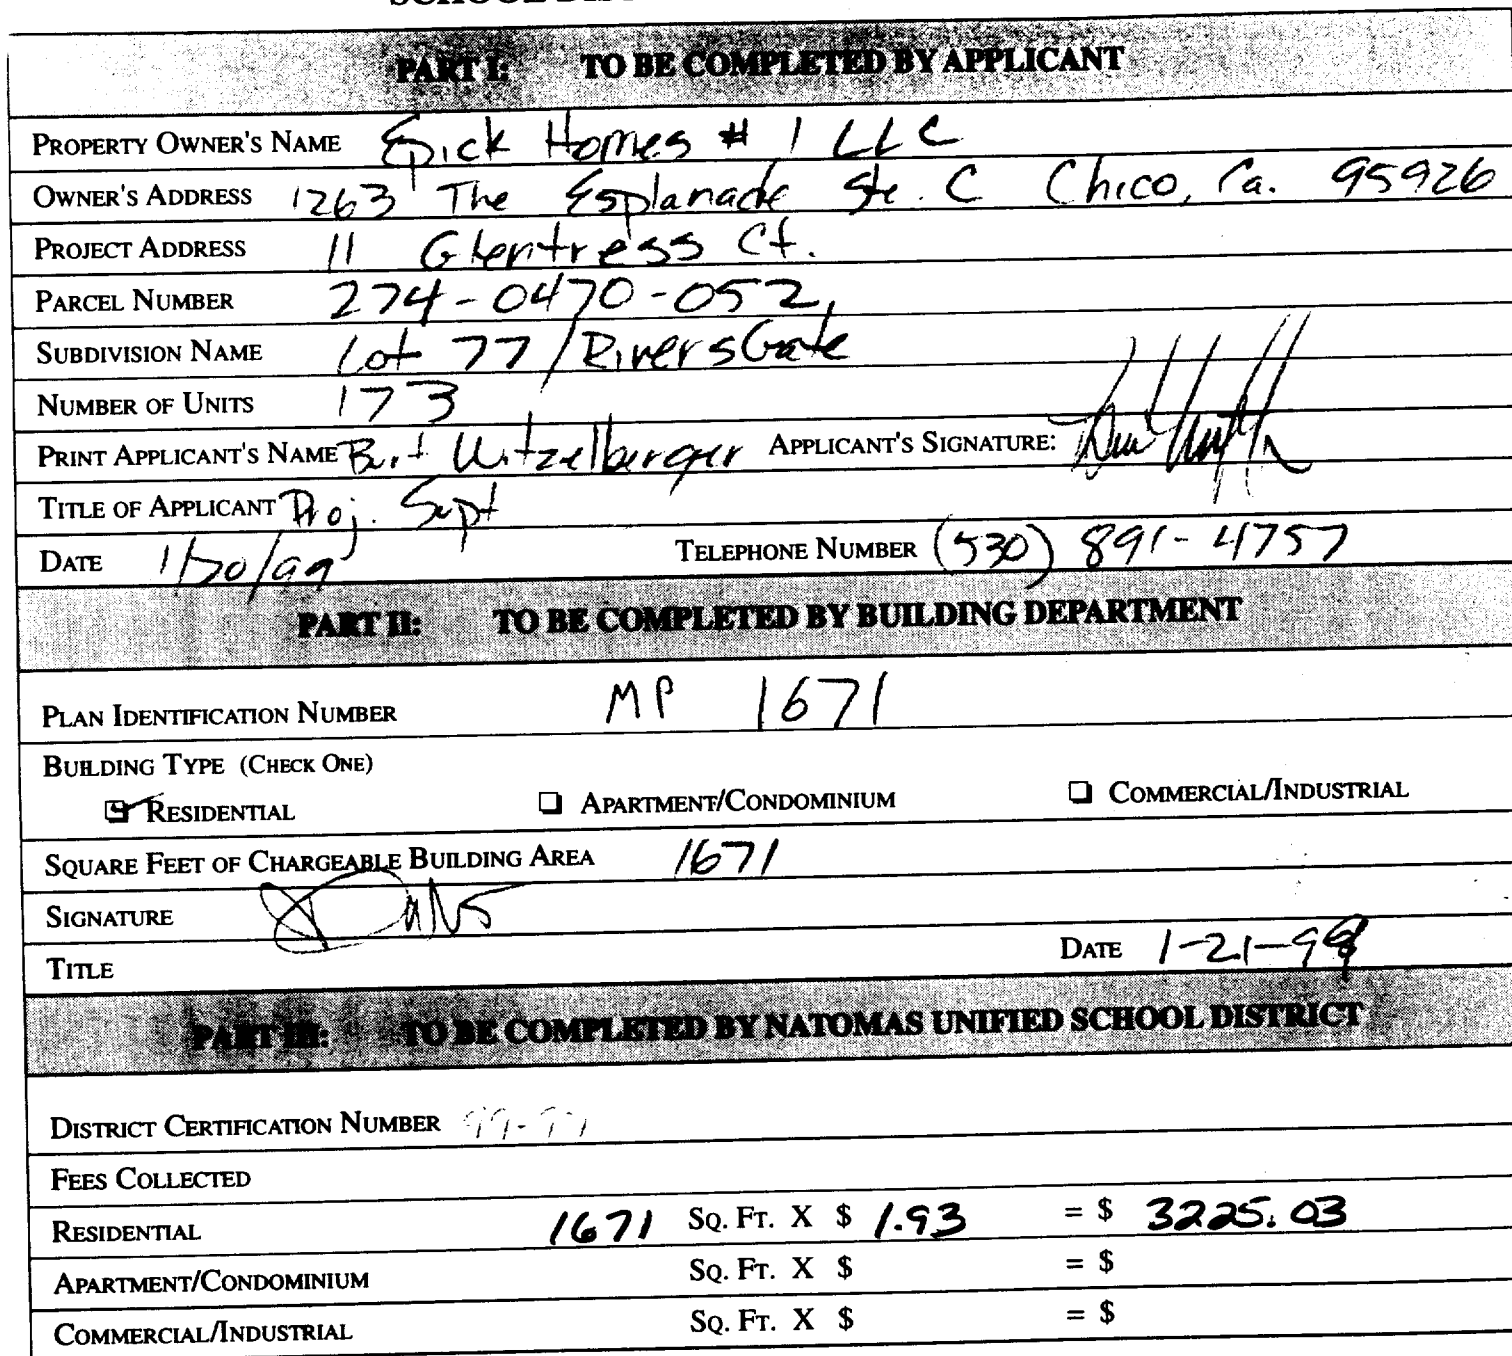 PART I: TO BE COMPLETED BY APPLICANT
PROPERTY OWNER'S NAME Epick Homes # 1 LLC
OWNER'S ADDRESS 1263 The Esplanade Ste. C Chico, Ca. 95926
PROJECT ADDRESS 11 Glentress Ct.
PARCEL NUMBER 274-0470-052
SUBDIVISION NAME Lot 77 / RiversGate
NUMBER OF UNITS 173
PRINT APPLICANT'S NAME Burt Witzelberger APPLICANT'S SIGNATURE:
TITLE OF APPLICANT Proj. Supt
DATE 1/20/99 TELEPHONE NUMBER (530) 891-4757
PART II: TO BE COMPLETED BY BUILDING DEPARTMENT
PLAN IDENTIFICATION NUMBER MP 1671
BUILDING TYPE (CHECK ONE)
RESIDENTIAL APARTMENT/CONDOMINIUM COMMERCIAL/INDUSTRIAL
SQUARE FEET OF CHARGEABLE BUILDING AREA 1671
SIGNATURE
TITLE DATE 1-21-99
PART III: TO BE COMPLETED BY NATOMAS UNIFIED SCHOOL DISTRICT
DISTRICT CERTIFICATION NUMBER
FEES COLLECTED
RESIDENTIAL 1671 SQ. FT. X $ 1.93 = $ 3225.03
APARTMENT/CONDOMINIUM SQ. FT. X $ = $
COMMERCIAL/INDUSTRIAL SQ. FT. X $ = $